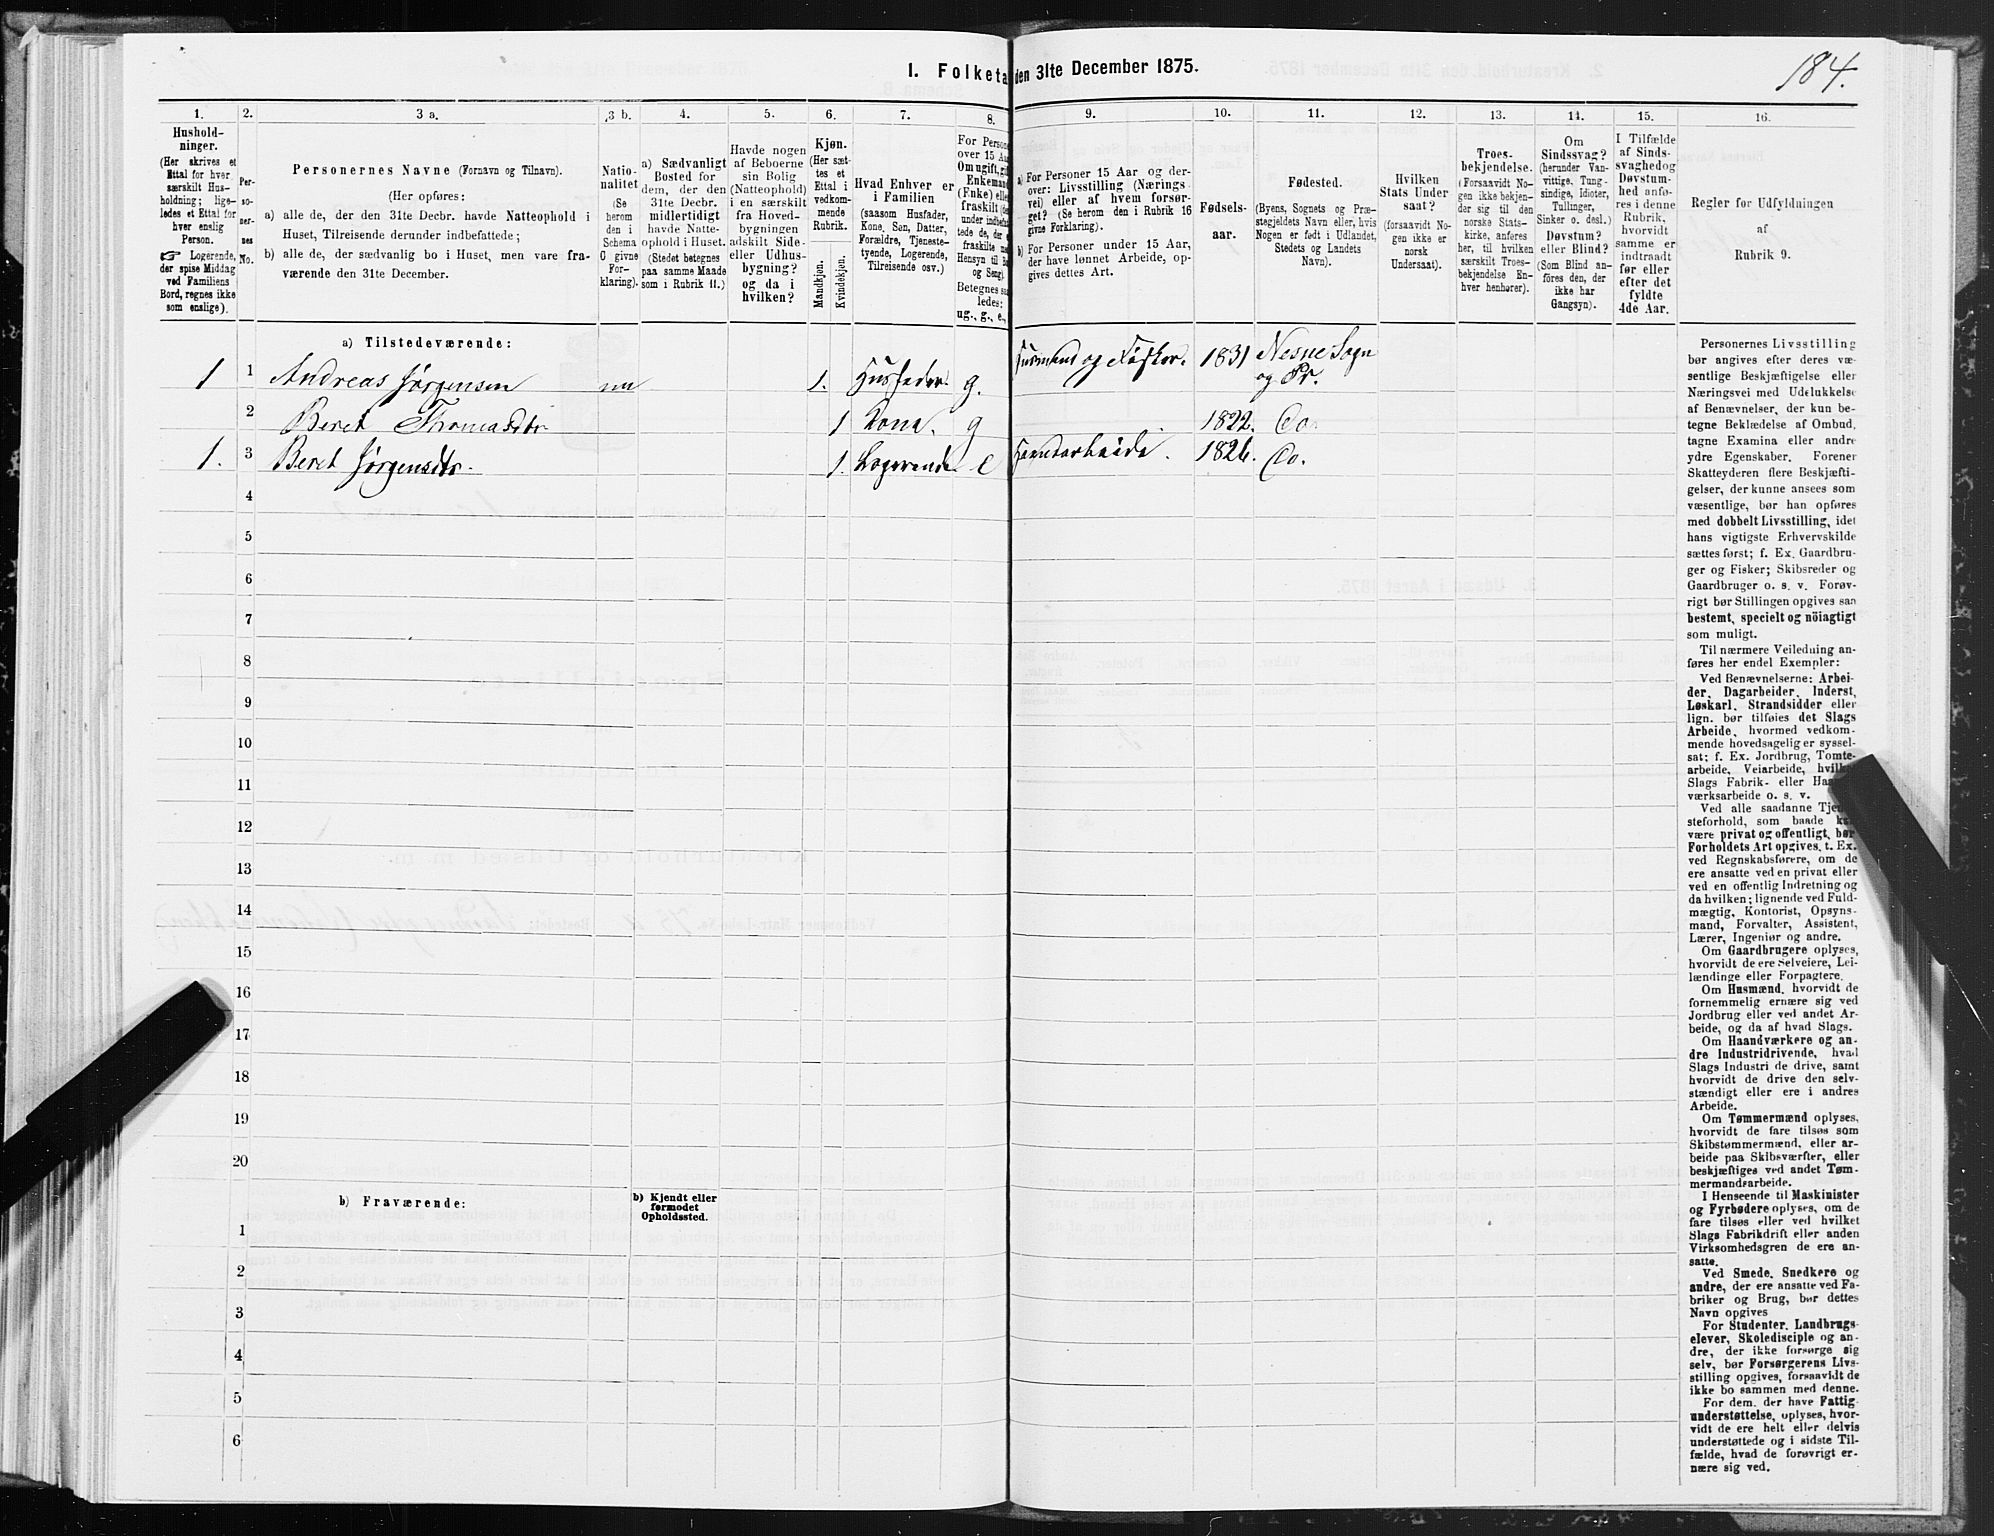 184.
1. Folketa den 31te December 1875.
1. 2. 3 a. 3 b. 4. 5. 6. 7. 8. 9. 10. 11. 12. 13. 14. 15. 16.
Hushold-
ninger.
(Her skrives et
Ettal for hver
særskilt Hus-
holdning; lige-
ledes et Ettal for
hver enslig
Person.
☞ Logerende,
der spise Middag
ved Familiens
Bord, regnes ikke
som enslige).
Per-
so-
ner-
nes
No.
Personernes Navne (Fornavn og Tilnavn).
(Her opføres:
a) alle de, der den 31te Decbr. havde Natteophold i
Huset, Tilreisende derunder indbefattede;
b) alle de, der sædvanlig bo i Huset, men vare fra-
værende den 31te December.
Natio-
nalitet
(Se
herom
den i
Schema
C givne
For-
klaring).
a) Sædvanligt
Bosted for
dem, der den
31te Decbr.
midlertidigt
havde Natte-
ophold i Huset.
(Stedet betegnes
paa samme Maade
som i Rubrik 11.)
Havde nogen
af Beboerne
sin Bolig
(Natteophold)
i en særskilt
fra Hoved-
bygningen
adskilt Side-
eller Udhus-
bygning?
og da i
hvilken?
Kjøn.
(Her sæt-
tes et
Ettal i
vedkom-
mende
Rubrik.
Mandkjøn.
Kvindekjøn.
Hvad Enhver er
i Familien
(saasom Husfader,
Kone, Søn, Datter,
Forældre, Tjeneste-
tyende, Logerende,
Tilreisende osv.)
For Persone
over 15 Aa
Om ugift, gif
Enkemand
(Enke) elle
fraskilt
ug., g., e.,
a) For Personer 15 Aar og der-
over: Livsstilling (Nærings
vei) eller af hvem forsør-
get? (Se herom den i Rubrik 16
givne Forklaring).
b) For Personer under 15 Aar,
der have lønnet Arbeide, op-
gives dettes Art.
Fødsels-
aar.
Fødested.
(Byens, Sognets og Præ-
stegjeldets Navn eller, hvis
Nogen er født i Udlandet,
Stedets og Landets
Navn).
Hvilken
Stats Under
saat?
(forsaavidt No-
gen ikke er
norsk
Undersaat).
Troes-
bekjendelse.
(Forsaavidt No-
gen ikke bekjen-
der sig til den
norske Stats-
kirke, anføres
her, til hvilken
særskilt Troes-
bekjendelse En-
hver henhører).
Om
Sindssvag?
(herunder Van-
vittige, Tung-
sindige, Idioter,
Tullinger,
Sinker o. desl.)
Døvstum?
eller Blind?
(Som Blind an-
føres den, der
ikke har
Gangsyn).
I Tilfælde
af Sinds-
svaghed og
Døvstum-
hed anfø-
res i denne
Rubrik,
hvorvidt
samme er
indtraadt
før eller
efter det
fyldte
4de Aar.
Regler for Udfyldningen
af
Rubrik 9.
a) Tilstedeværende:
1 1 Andreas Jørgensen nu 1. Husfader. g. Husmand og Fisker. 1831 Nesne Sogn
og Pr.
2 Beret Thomasdtr 1 Kona. g 1822. Do.
1. 3 Beret Jørgensdtr. 1. Logerende e Haandarbeide. 1826. Do.
4
5
6
7
8
9
10
11
12
13
14
15
16
17
18
19
20
b) Fraværende: b) Kjendt eller
formodet
Opholdssted.
1
2
3
4
5
6
Personernes Livsstilling
bør angives efter deres væ-
sentlige Beskjæftigelse eller
Næringsvei med Udelukkelse
af Benævnelser, der kun be-
tegne Beklædelse af Ombud,
tagne Examina eller andre
ydre Egenskaber. Forener
Skatteyderen flere Beskjæfti-
gelser, der kunne ansees som
væsentlige, bør han opføres
med dobbelt Livsstilling, idet
hans vigtigste Erhvervskilde
sættes først; f. Ex. Gaardbru-
ger og Fisker; Skibsreder og
Gaardbruger o. s. v. Forøv-
rigt bør Stillingen opgives saa
bestemt, specielt og nöiagtigt
som muligt.
Til nærmere Veiledning an-
føres her endel Exempler:
Ved Benævnelserne: Arbei-
der, Dagarbeider, Inderst,
Løskarl, Strandsidder eller
lign. bør tilføies det Slags
Arbeide, hvormed vedkom-
mende hovedsagelig er syssel-
sat; f. Ex. Jordbrug, Tomte-
arbeide, Veiarbeide, hvilke
Slags Fabrik- eller
værksarbeide o. s. v.
Ved alle saadanne
steforhold, som baade
være privat og offentligt, bør
Forholdets Art opgives, t. Ex.
ved Regnskabsførere, om de
ere ansatte ved en privat eller
ved en offentlig Indretning og
da hvilken; lignende ved Fuld-
mægtig, Kontorist, Opsyns-
mand, Forvalter, Assistent,
Lærer, Ingeniør og andre.
Om Gaardbrugere oplyses,
hvorvidt de ere Selveiere, Lei-
lændinge eller Forpagtere.
Om Husmænd, hvorvidt de
fornemmelig ernære sig ved
Jordbrug eller ved andet Ar-
beide, og da af hvad Slags.
Om Haandværkere og an-
dre Industridrivende, hvad
Slags Industri de drive, samt
hvorvidt de drive den selv-
stændigt eller ere i andres
Arbeide.
Om Tømmermænd oplyses,
hvorvidt de fare tilsøs som
Skibstømmermænd, eller ar-
beide paa Skibsværfter, eller
beskjæftiges ved andet Tøm-
mermandsarbeide.
I Henseende til Maskinister
og Fyrbødere oplyses, om de
fare tilsøs eller ved hvilket
Slags Fabrikdrift eller anden
Virksomhedsgren de ere an-
satte.
Ved Smede, Snedkere og
andre, der ere ansatte ved Fa-
briker og Brug, bør dettes
Navn opgives
For Studenter, Landbrugs-
elever, Skoledisciple og an-
dre, der ikke forsørge sig
selv, bør Forsørgerens Livs-
stilling opgives, forsaavidt de
ikke bo sammen med denne.
For dem, der have Fattig-
understøttelse, oplyses, hvor-
vidt de ere helt eller delvis
understøttede og i sidste Til-
fælde, hvad de forøvrigt er-
nære sig ved.